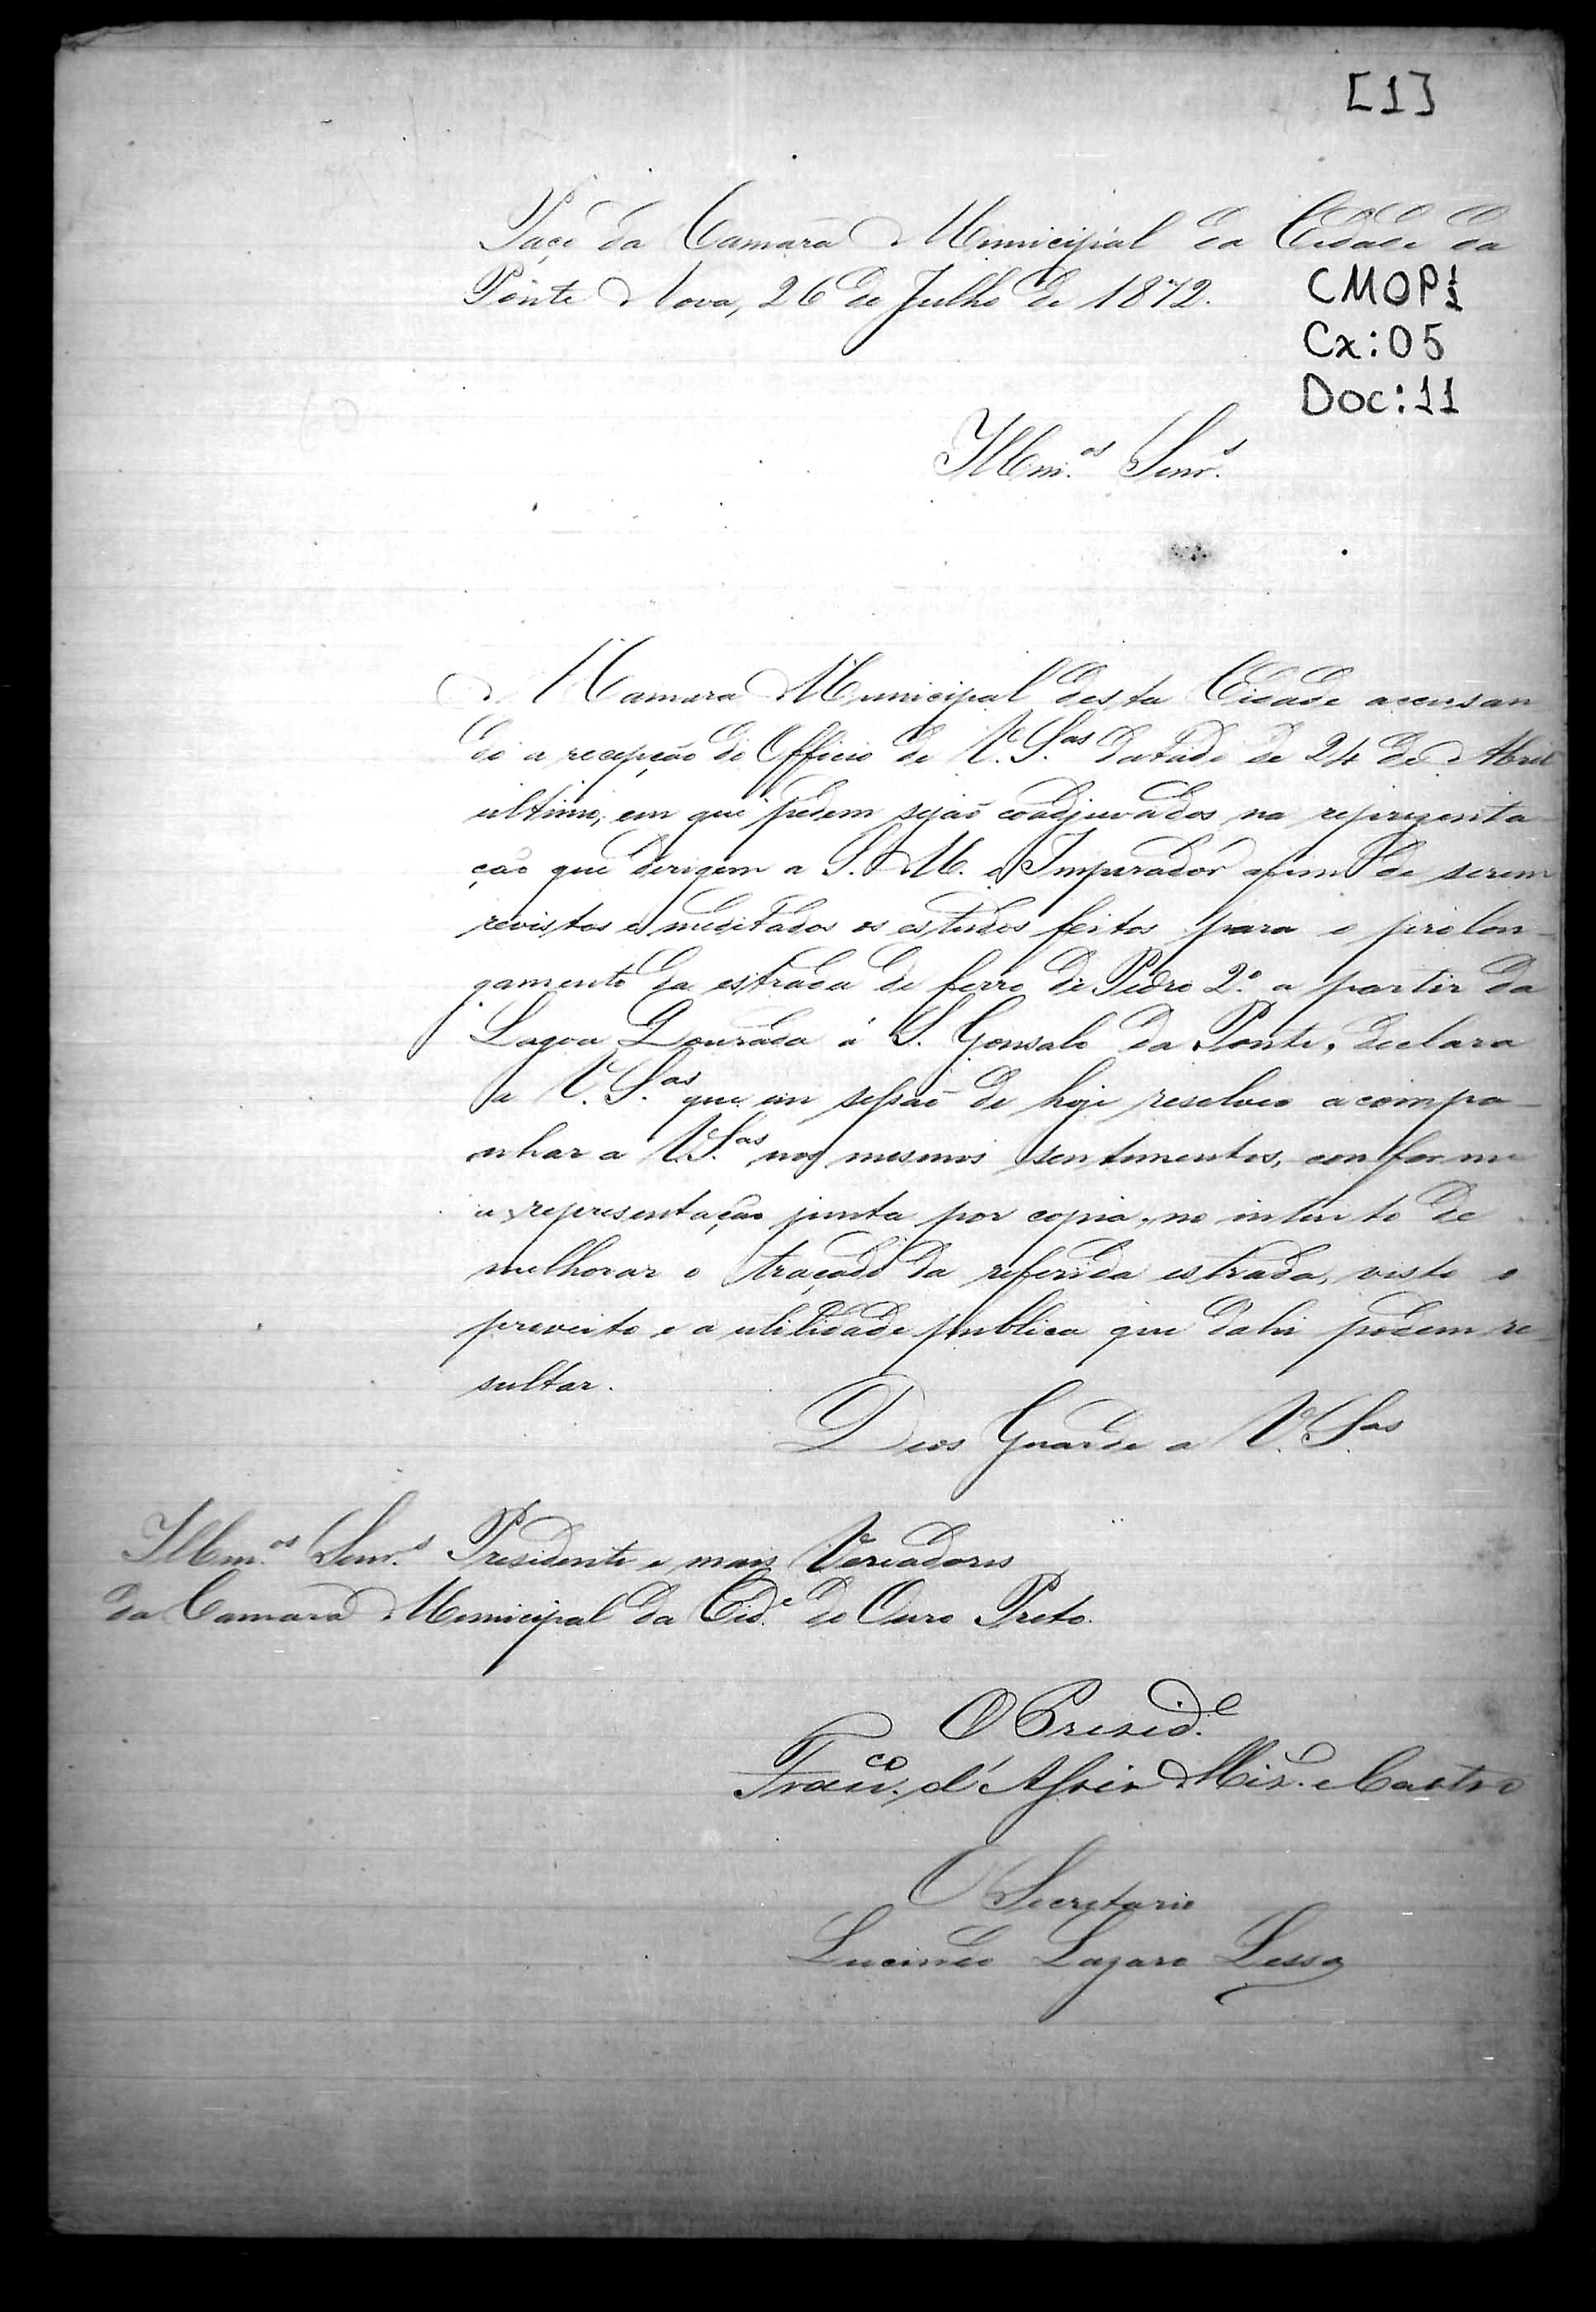 [1]
Paço da Camara Municipal da Cidade da
Ponte Nova, 26 de Julho de 1872.
CMOP1
Cx: 05
Doc: 11
Illm.os Senr.s
A Camara Municipal desta Cidade accusan
do a recepção do Officio de V. S.as datado de 24 de Abril
ultimo, em que pedem sejão coadjuvados na representa-
ção que derigem a S. M. o Imperador afim de serem
revistos e meditados os estudos feitos para o prolon-
gamento da estrada de ferro de Pedro 2.º a partir da
Lagoa Dourada á S. Gonsalo da Ponte, declara
a V. S.as que em sessão de hoje resolveo acompa-
nhar a V. S.as nos mesmos sentimentos, conforme
a representação junta por copia, no intuito de
melhorar o traçado da referida estrada, visto o
proveito e a utilidade publica que dahi podem re-
sultar.
Deos Guarde a V. S.as
Illm.os Senr.s Presidente e mais Vereadores
da Camara Municipal da Cid.e do Ouro Preto.
O Presid.e
Franc.co d'Assis e Castro
O Secretario
Lucindo Lazaro Lessa